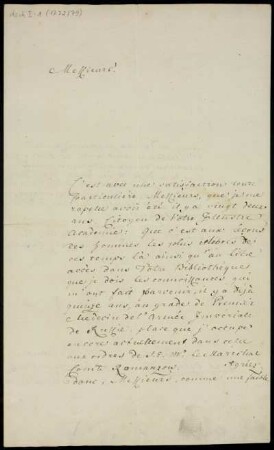 Messieurs!
C'est avec une satisfaction toute
particulière, Messieurs, que je me
rapelle avoir été il y a vingt deux
ans, Citoyen de Votre Illustre
Academie: Que c'est aux leçons
des hommes les plus celebres de
ces temps là ainsi qu'au libre
accès dans Votre Bibliotheque
que je dois les connoissances qui
m'ont fait parvenir, il y a déjà
quinze ans, au grade de Premier
Medecin de l'Armée Imperiale
de Russie, place que j'occupe
encore actuellement dans celle
aux ordres de S. E. Mr. le Marechal
Comte Romanzow.
Agréez
donc, Messieurs, comme une faible